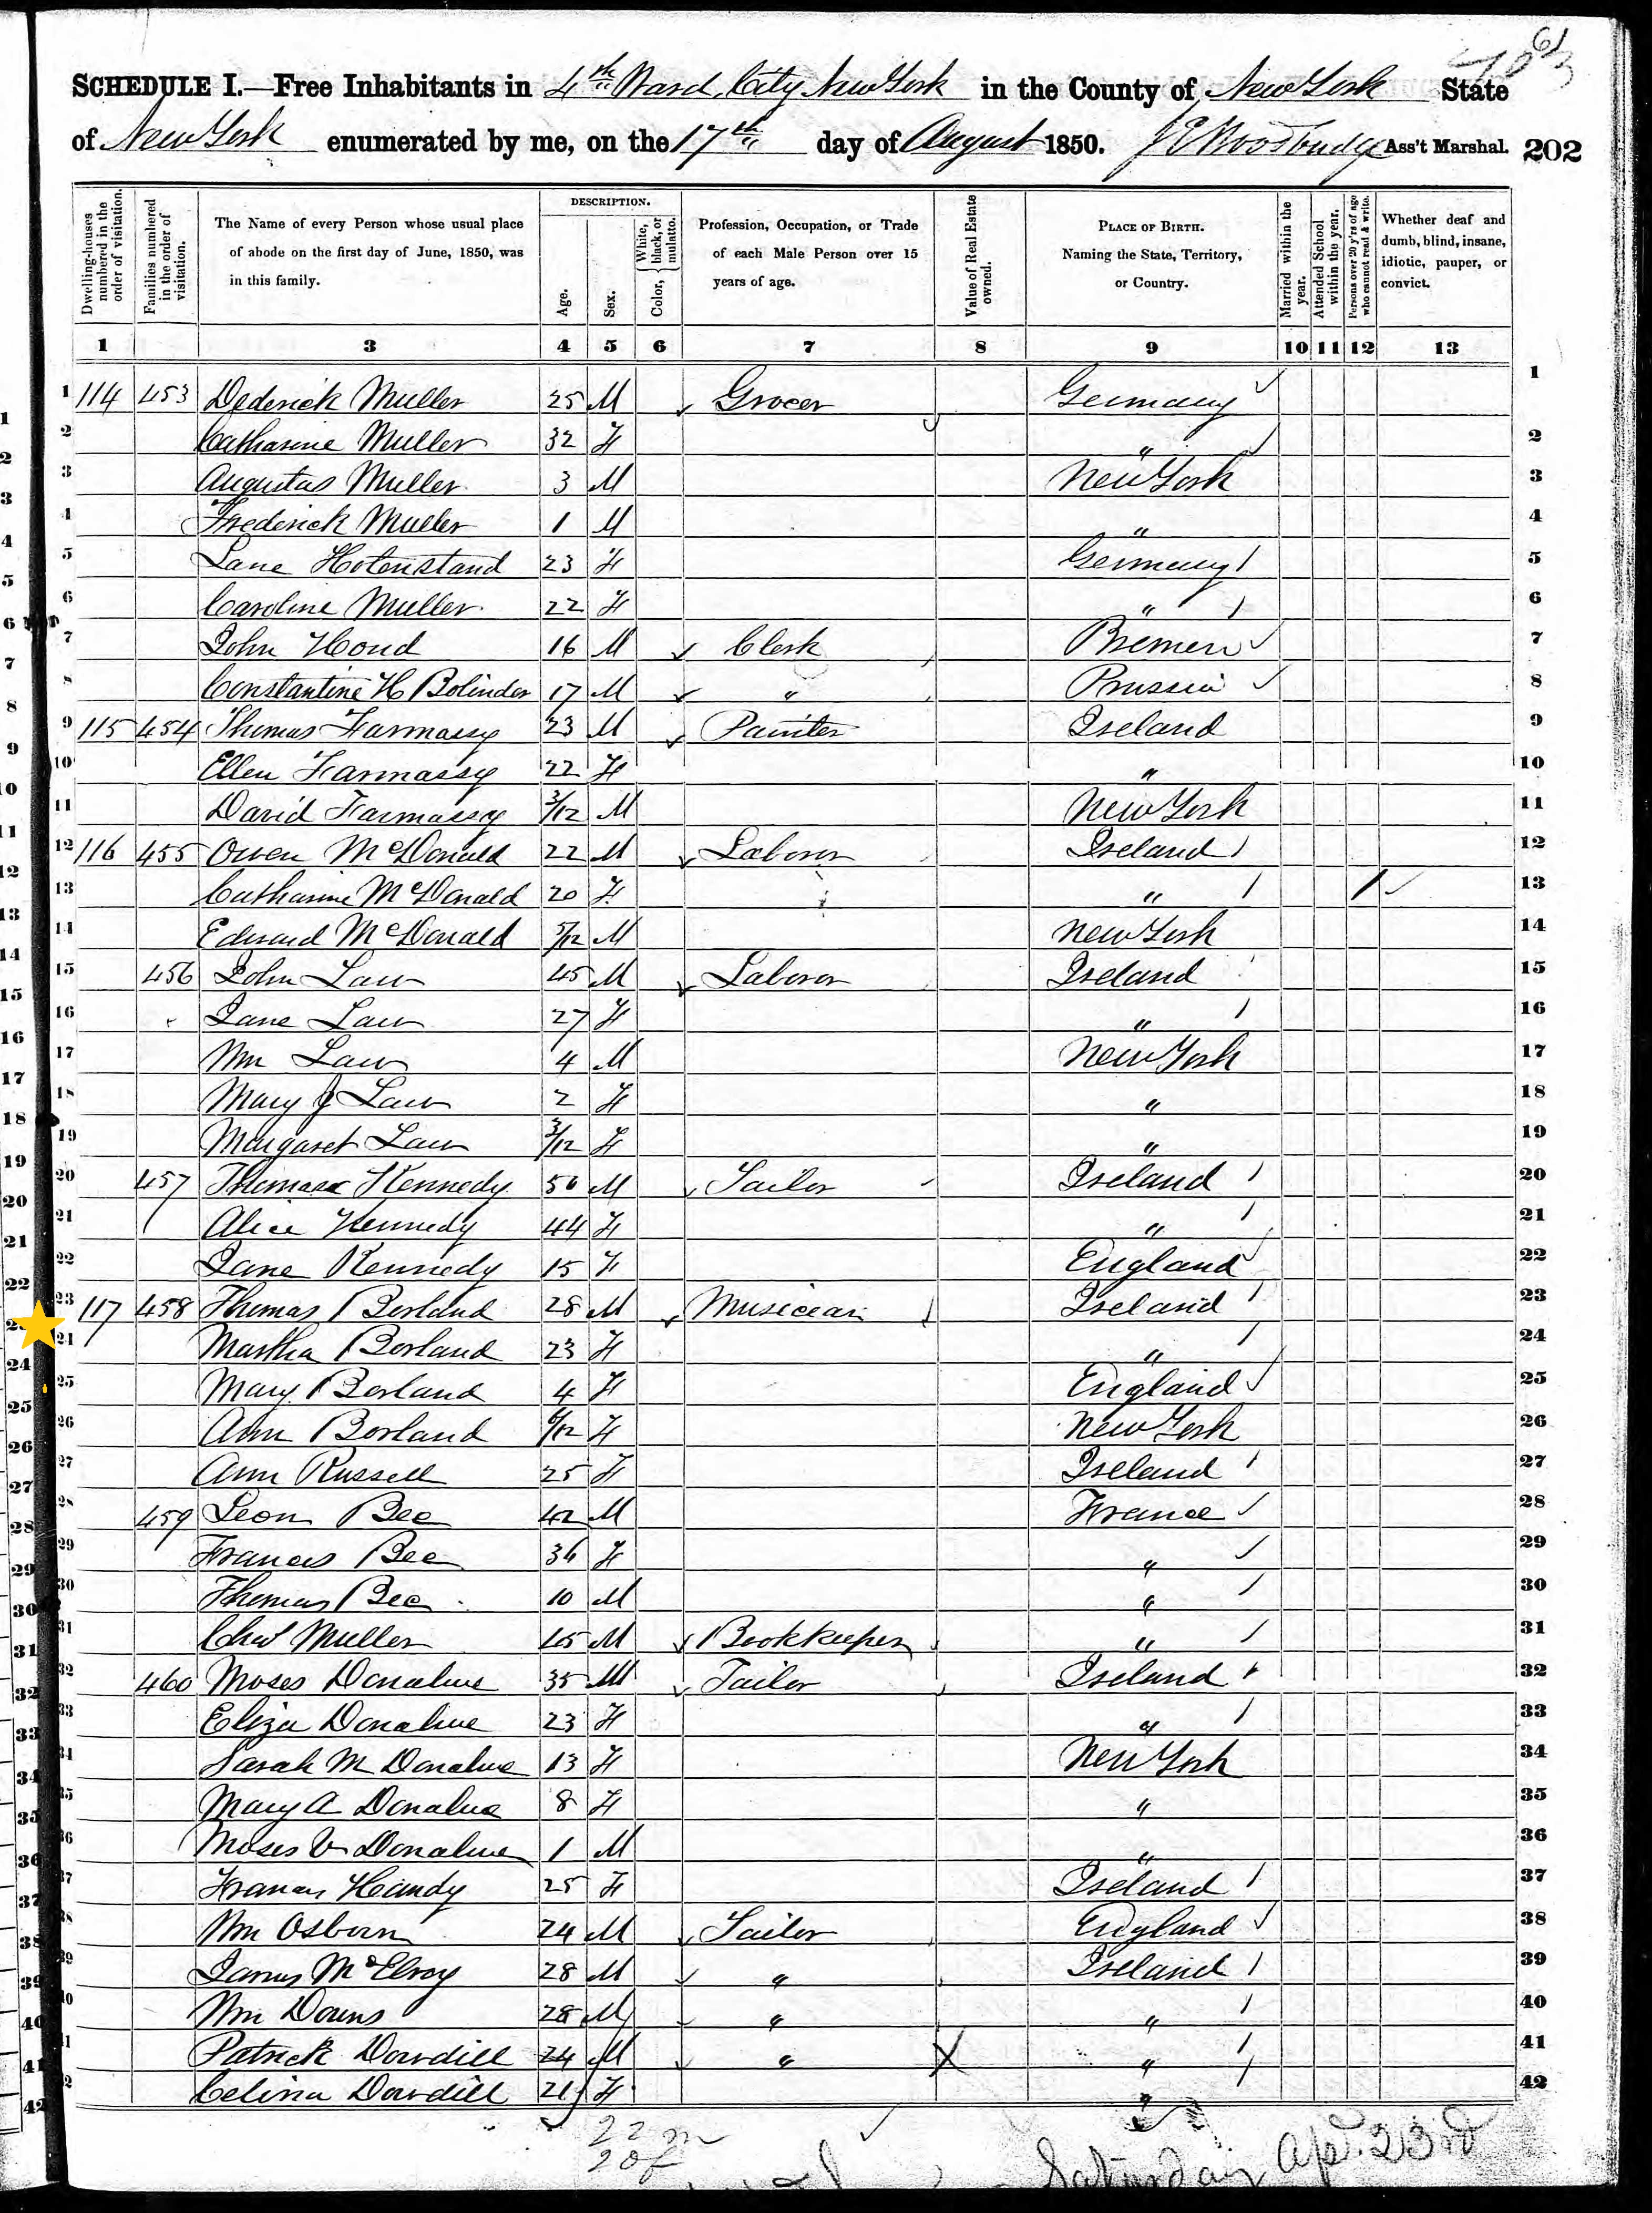 7083
61
SCHEDULE I.—Free Inhabitants in 4th Ward City New York in the County of New York State
of New York enumerated by me, on the 17th day of August 1850. J E Woodbridge Ass't Marshal. 202
Dwelling-houses numbered in the order of visitation. Families numbered in the order of visitation. The Name of every Person whose usual place of abode on the first day of June, 1850, was in this family. DESCRIPTION. Age. Sex. Color, White, black, or mulatto. Profession, Occupation, or Trade of each Male Person over 15 years of age. Value of Real Estate owned. PLACE OF BIRTH. Naming the State, Territory, or Country. Married within the year. Attended School within the year. Persons over 20 y'rs of age who cannot read & write. Whether deaf and dumb, blind, insane, idiotic, pauper, or convict.
1 3 4 5 6 7 8 9 10 11 12 13
1 114 453 Dederick Muller 25 M Grocer Germany 1
2 Catharine Muller 32 F " 2
3 Augustas Muller 3 M New York 3
4 Frederick Muller 1 M " 4
5 Lane Hotenstand 23 F Germany 5
6 Caroline Muller 22 F " 6
7 John Hond 16 M Clerk Bremen 7
8 Constantine H Bolinder 17 M " Prussia 8
9 115 454 Thomas Farmassy 23 M Painter Ireland 9
10 Ellen Farmassy 22 F " 10
11 David Farmassy 3/12 M New York 11
12 116 455 Owen McDonald 22 M Laborer Ireland 12
13 Catharine McDonald 20 F " 1 13
14 Edward McDonald 5/12 M New York 14
15 456 John Law 45 M Laborer Ireland 15
16 Jane Law 27 F " 16
17 Wm Law 4 M New York 17
18 Mary J Law 2 F " 18
19 Margaret Law 3/12 F " 19
20 457 Thomas Kennedy 50 M Tailor Ireland 20
21 Alice Kennedy 44 F " 21
22 Jane Kennedy 15 F England 22
23 117 458 Thomas Borland 28 M Musician Ireland 23
24 Martha Borland 23 F " 24
25 Mary Borland 4 F England 25
26 Ann Borland 6/12 F New York 26
27 Ann Russell 25 F Ireland 27
28 459 Leon Bee 42 M France 28
29 Frances Bee 36 F " 29
30 Thomas Bee 10 M " 30
31 Chas Muller 45 M Bookkeeper " 31
32 460 Moses Donahue 35 M Tailor Ireland 32
33 Eliza Donahue 23 F " 33
34 Sarah M Donahue 13 F New York 34
35 Mary A Donahue 8 F " 35
36 Moses V Donahue 1 M " 36
37 Frances Handy 25 F Ireland 37
38 Wm Osborn 24 M Tailor England 38
39 James McElroy 28 M " Ireland 39
40 Wm Downs 28 M " " 40
41 Patrick Dowdill 24 M " " 41
42 Celina Dowdill 21 F " 42
22 m
20 f
Saturday Ap. 23rd